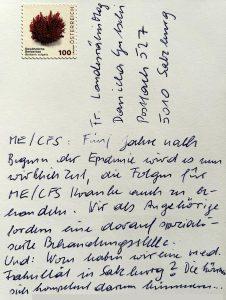 Gewöhnliche
Berberitze
Berberis vulgaris
100
ÖSTERREICH
Fr. Landesrätin Mag
Daniela
Postfach 527
5010 Salzburg
ME/CFS: Fünf Jahre nach
Beginn der Epidemie wird es nun
wirklich Zeit, die Folgen für
ME/CFS Kranke auch zu be-
handeln. Wir als Angehörige
fordern eine darauf speziali-
sierte Behandlungsstelle.
Und: Wozu haben wir eine med.
Fakultät in Salzburg? Die könnte
sich kompetent darum kümmern...